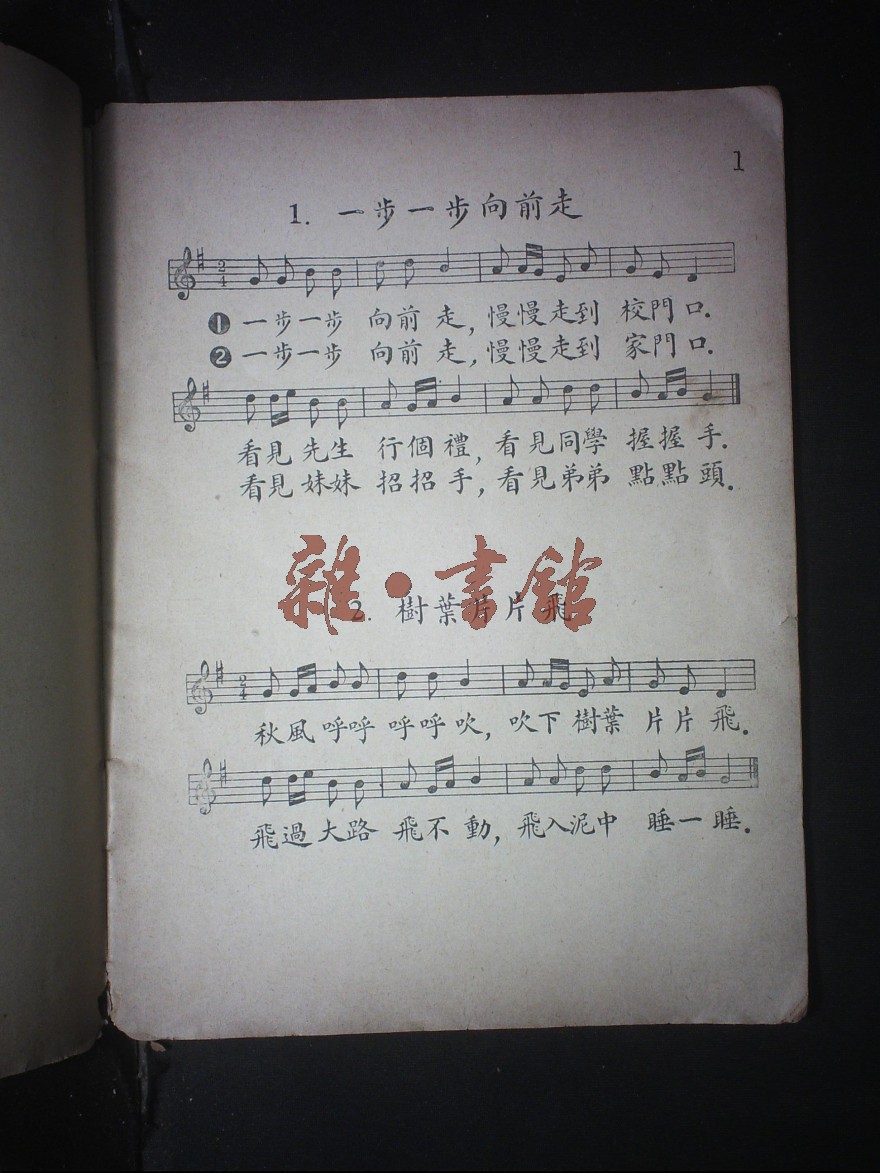 1
1. 一步一步向前走
2 4
❶ 一步一步 向前 走, 慢慢走到 校門口.
❷ 一步一步 向前 走, 慢慢走到 家門口.
看見 先生 行個 禮, 看見同學 握握 手.
看見 妹妹 招招 手, 看見弟弟 點點 頭.
雜·書館
2. 樹葉片片飛
2 4
秋風 呼呼 呼呼 吹, 吹下 樹葉 片片 飛.
飛過 大路 飛不 動, 飛入泥中 睡一 睡.